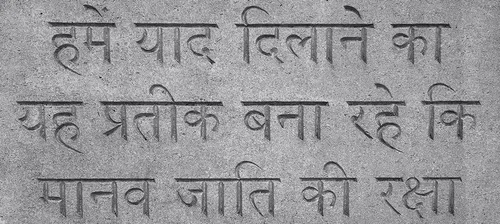 हमें याद दिलाने का
यह प्रतीक बना रहे कि
मानव जाति की रक्षा